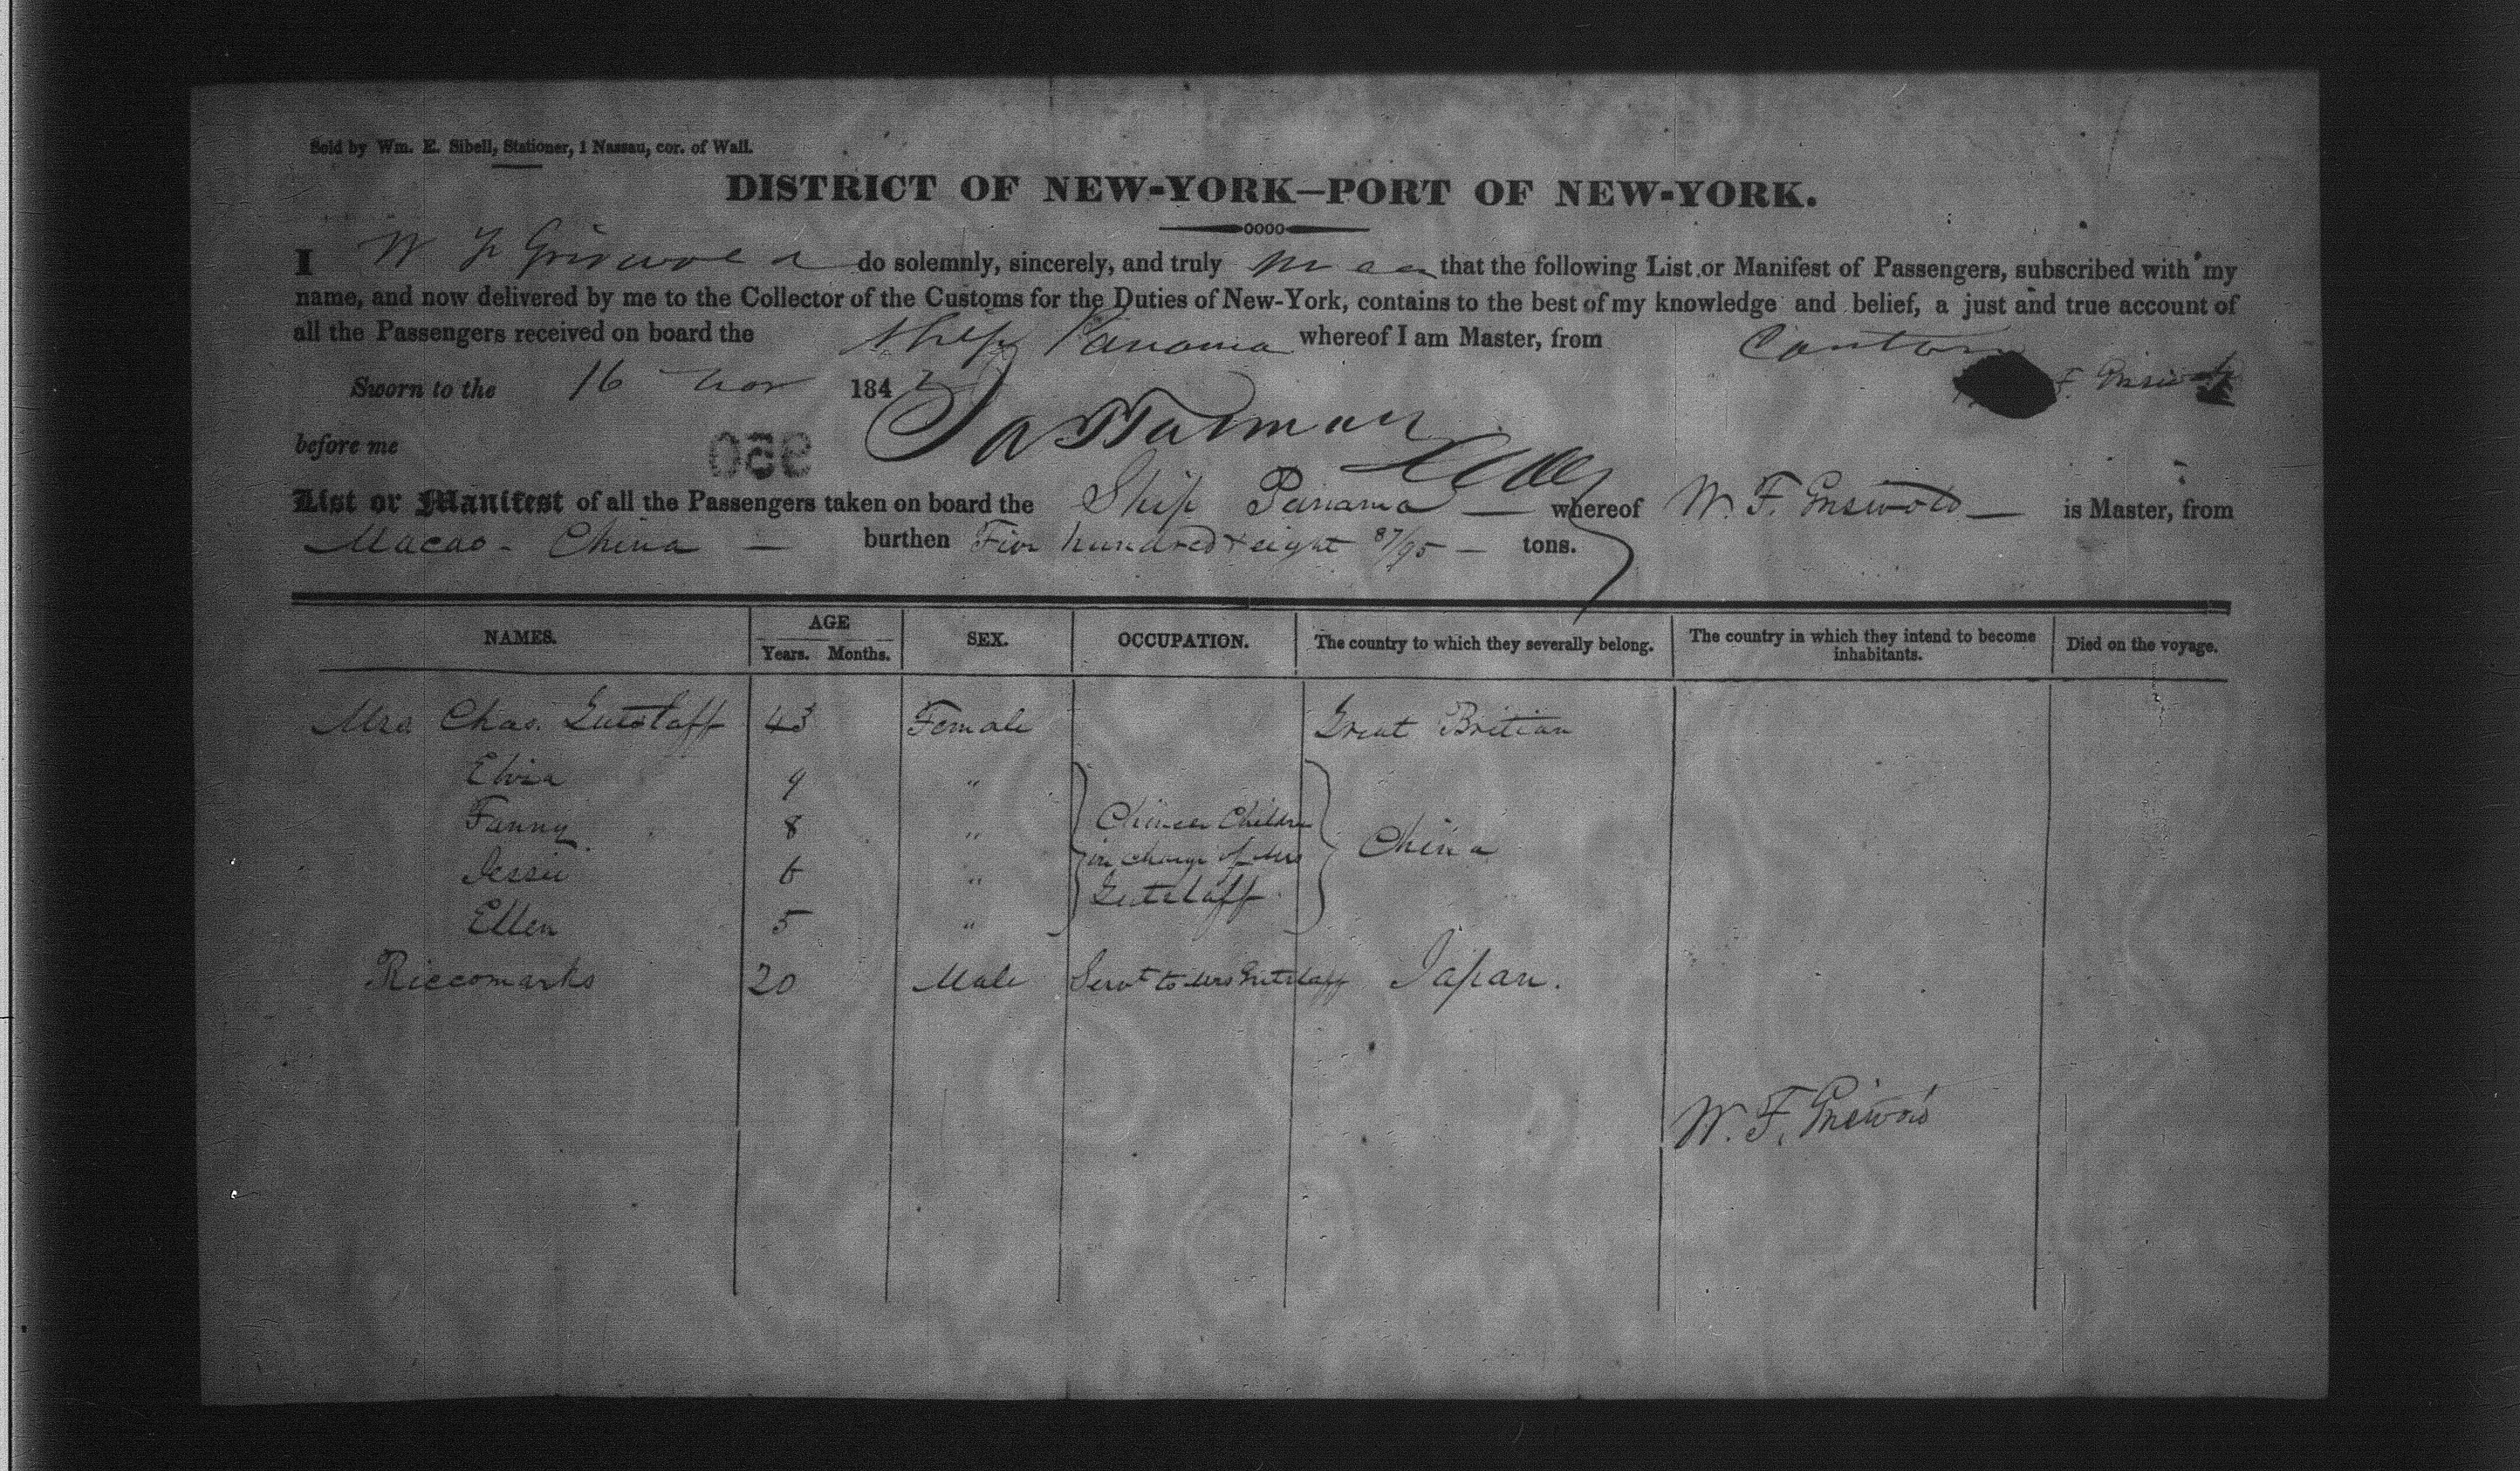 Sold by Wm. E. Sibell, Stationer, 1 Nassau, cor. of Wall.
DISTRICT OF NEW-YORK—PORT OF NEW-YORK.
I W F Griswold do solemnly, sincerely, and truly swear that the following List or Manifest of Passengers, subscribed with my
name, and now delivered by me to the Collector of the Customs for the Duties of New-York, contains to the best of my knowledge and belief, a just and true account of
all the Passengers received on board the Ship Panama whereof I am Master, from Canton
Sworn to the 16 Nov 1842 F. Griswold
before me
950
List or Manifest of all the Passengers taken on board the Ship Panama — whereof W. F. Griswold — is Master, from
Macao - China — burthen Five hundred & eight 87/95 — tons.
NAMES. AGE Years. Months. SEX. OCCUPATION. The country to which they severally belong. The country in which they intend to become inhabitants. Died on the voyage.
Mrs Chas. Gutslaff 43 Female Great Britian
Elvia 9 "
Fanny 8 " Chinese Children
Jessie 6 " in charge of Mrs China
Ellen 5 " Gutslaff
Riccomarks 20 Male Servt to Mrs Gutslaff Japan.
W. F. Griswold